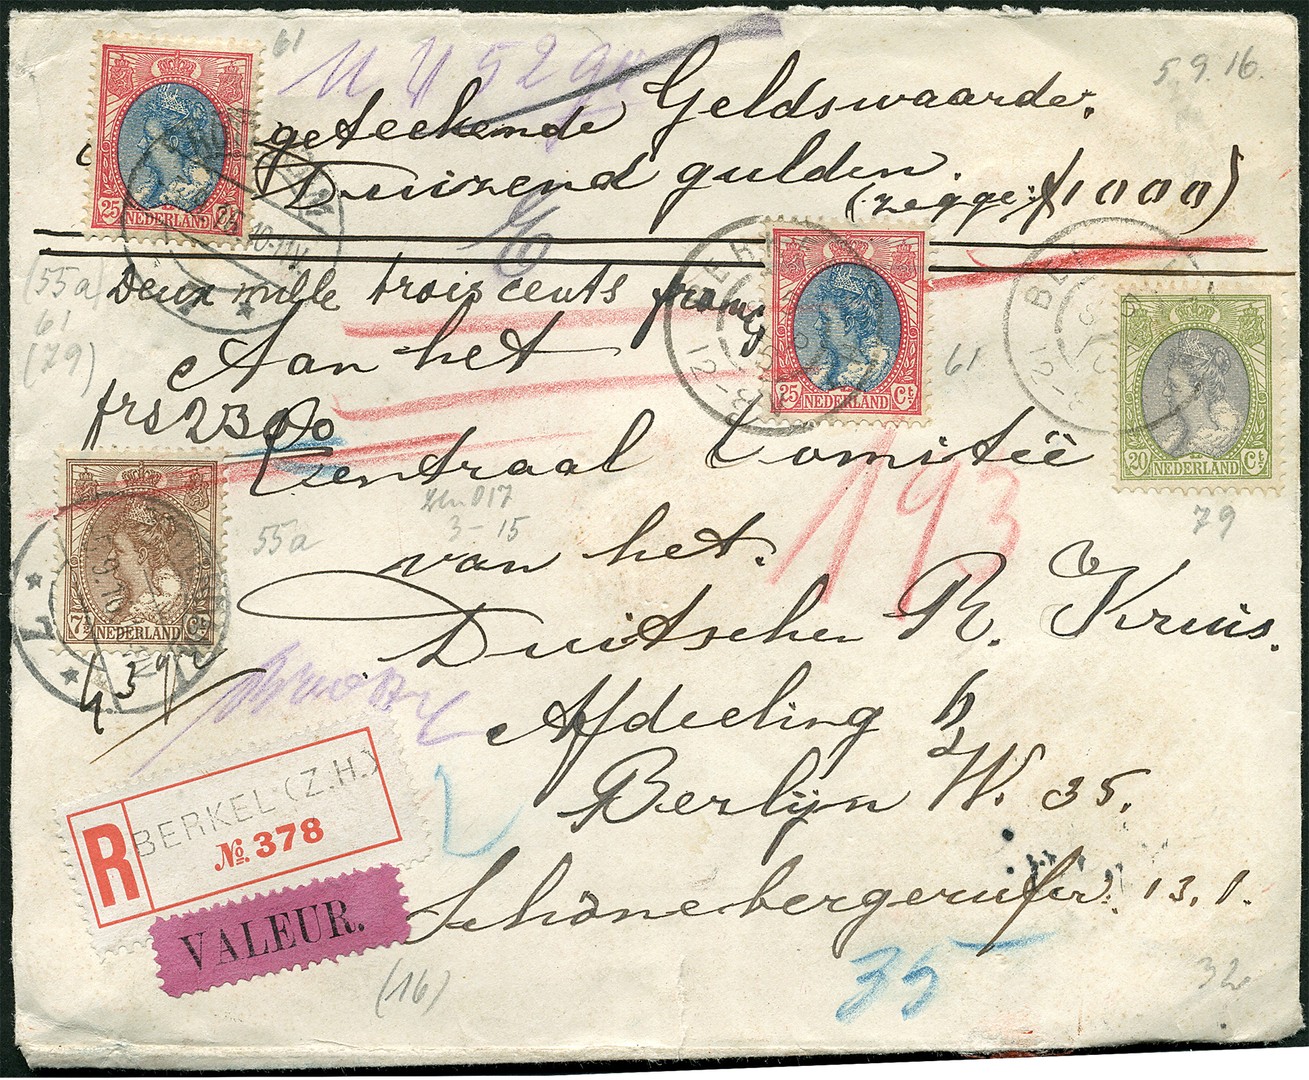 61
5.9.16.
geteekende Geldswaarde.
Duizend gulden.
(zegge: ƒ1000)
25
NEDERLAND
Deux mille trois cents francs
(55a)
61
(79)
Aan het
frs 2300
25 NEDERLAND Ct.
61
20 NEDERLAND Ct.
79
Centraal Comiteë
193
55a
3-15
van het.
7½ NEDERLAND Ct.
Duitscher R. Kruis.
Afdeeling b
Berlijn W. 35.
BERKEL (Z.H.)
R
No. 378
VALEUR.
Schönebergerufer. 13.1.
35
(16)
32